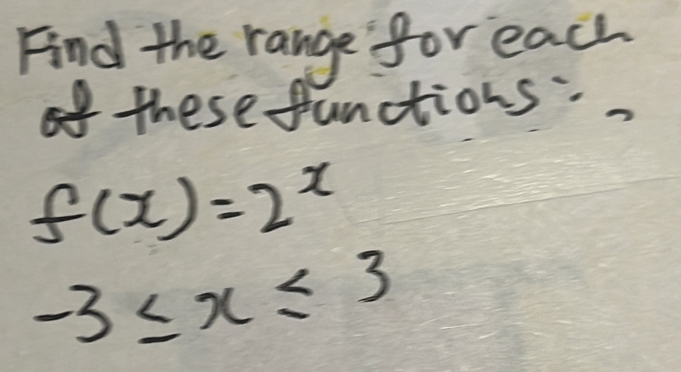 Find the range for each
of these functions:
f(x)=2^x
-3 ≤ x ≤ 3